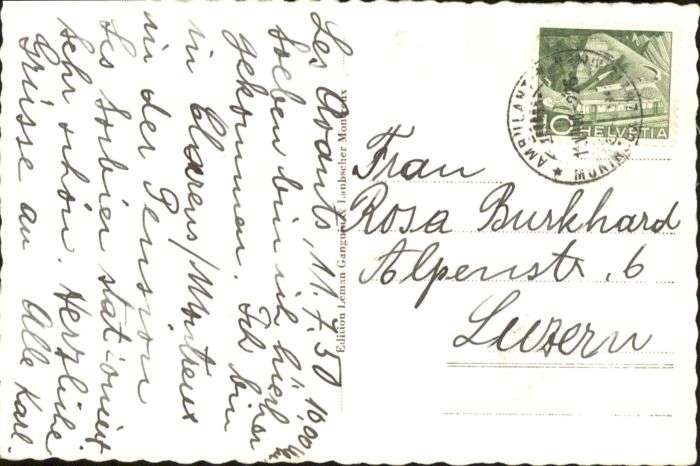 Les Avants, 11.7.50 10.00 Uhr
Soeben bin ich hier
gekommen. Ich bin
in Clarens/Montreux
in der Pension
Les Sorbier stationiert
sehr schön. Herzliche
Grüsse an Alle Karl.
Edition Leman Ganguin & Laubscher Montreux
AMBULANT
10
HELVETIA
Frau
Rosa Burkhard
Alpenstr. 6
Luzern